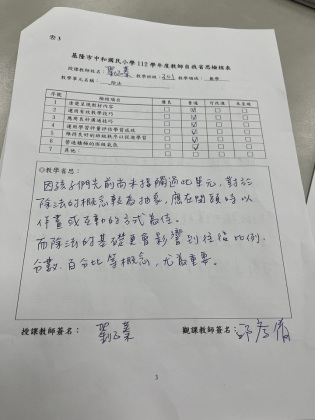 表3
基隆市中和國民小學 112 學年度教師自我省思檢核表
授課教師姓名： 教學班級：301 教學領域：數學
教學單元名稱：除法
序號 檢核項目 優良 普通 可改進 未呈現
1 清楚呈現教材內容
2 運用有效教學技巧
3 應用良好溝通技巧
4 運用學習評量評估學習成效
5 維持良好的班級秩序以促進學習
6 營造積極的班級氣氛
7 其他：
◎教學省思：
因孩子們先前尚未接觸過此單元，對於
除法的概念較為抽象，應在開頭時以
作畫或互動的方式最佳。
而除法的基礎更會影響到往後比例、
分數、百分比等概念，尤為重要。
授課教師簽名： 觀課教師簽名：
3